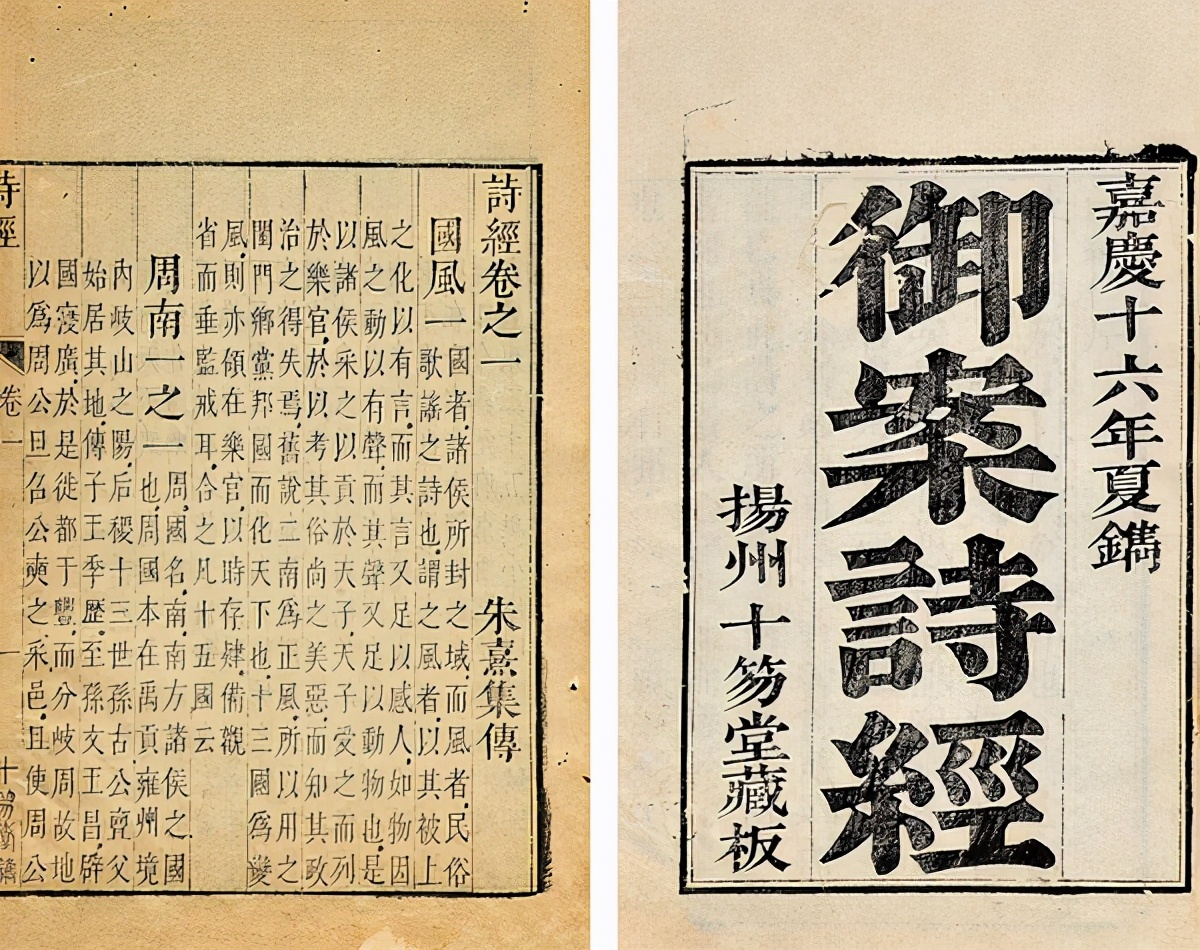 嘉慶十六年夏鐫
御案詩經
揚州十笏堂藏板
詩經卷之一 朱熹集傳
國風一 國者，諸侯所封之域，而風者，民俗
歌謠之詩也，謂之風者，以其被上
之化以有言，而其言又足以感人，如物因
風之動以有聲，而其聲又足以動物也，是
以諸侯采之以貢於天子，天子受之而列
於樂官，於以考其俗尚之美惡，而知其政
治之得失焉，舊說二南爲正風，所以用之
閨門鄉黨邦國而化天下也，十三國爲變
風，則亦領在樂官，以時存肄，備觀
省而垂監戒耳，合之凡十五國云
周南一之一 周，國名，南，南方諸侯之國
也，周國本在禹貢雍州境
內岐山之陽，后稷十三世孫古公亶父
始居其地，傳子王季歷，至孫文王昌，辟
國寖廣，於是徙都于豐，而分岐周故地
以爲周公旦召公奭之采邑，且使周公
詩經 卷一 一